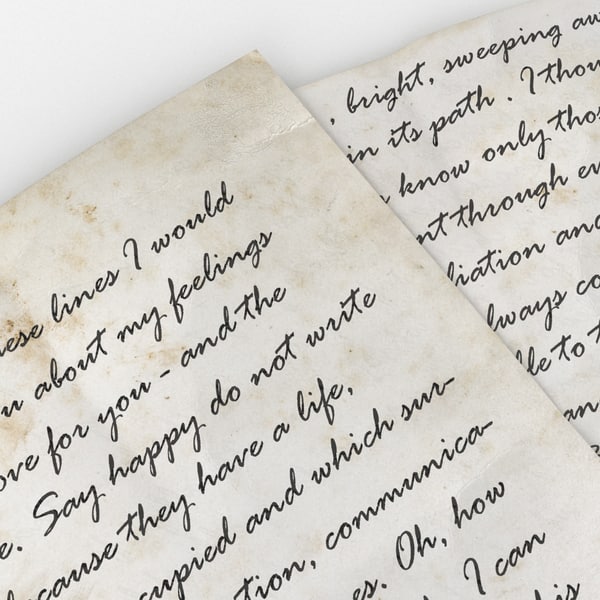 hese lines I would
u about my feelings
ove for you - and the
e. Say happy do not write
because they have a life,
cupied and which sur-
tion, communica-
es. Oh, how
I can
his
, bright, sweeping aw
in its path. I thou
know only thos
nt through ev
liation and
lways co
ble to t
an